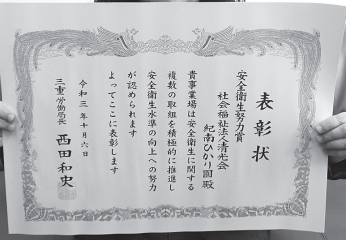 表彰状
安全衛生努力賞
社会福祉法人清光会
紀南ひかり園殿
貴事業場は安全衛生に関する
複数の取組を積極的に推進し
安全衛生水準の向上への努力
が認められます
よってここに表彰します
令和三年十月六日
三重労働局長 西田和史